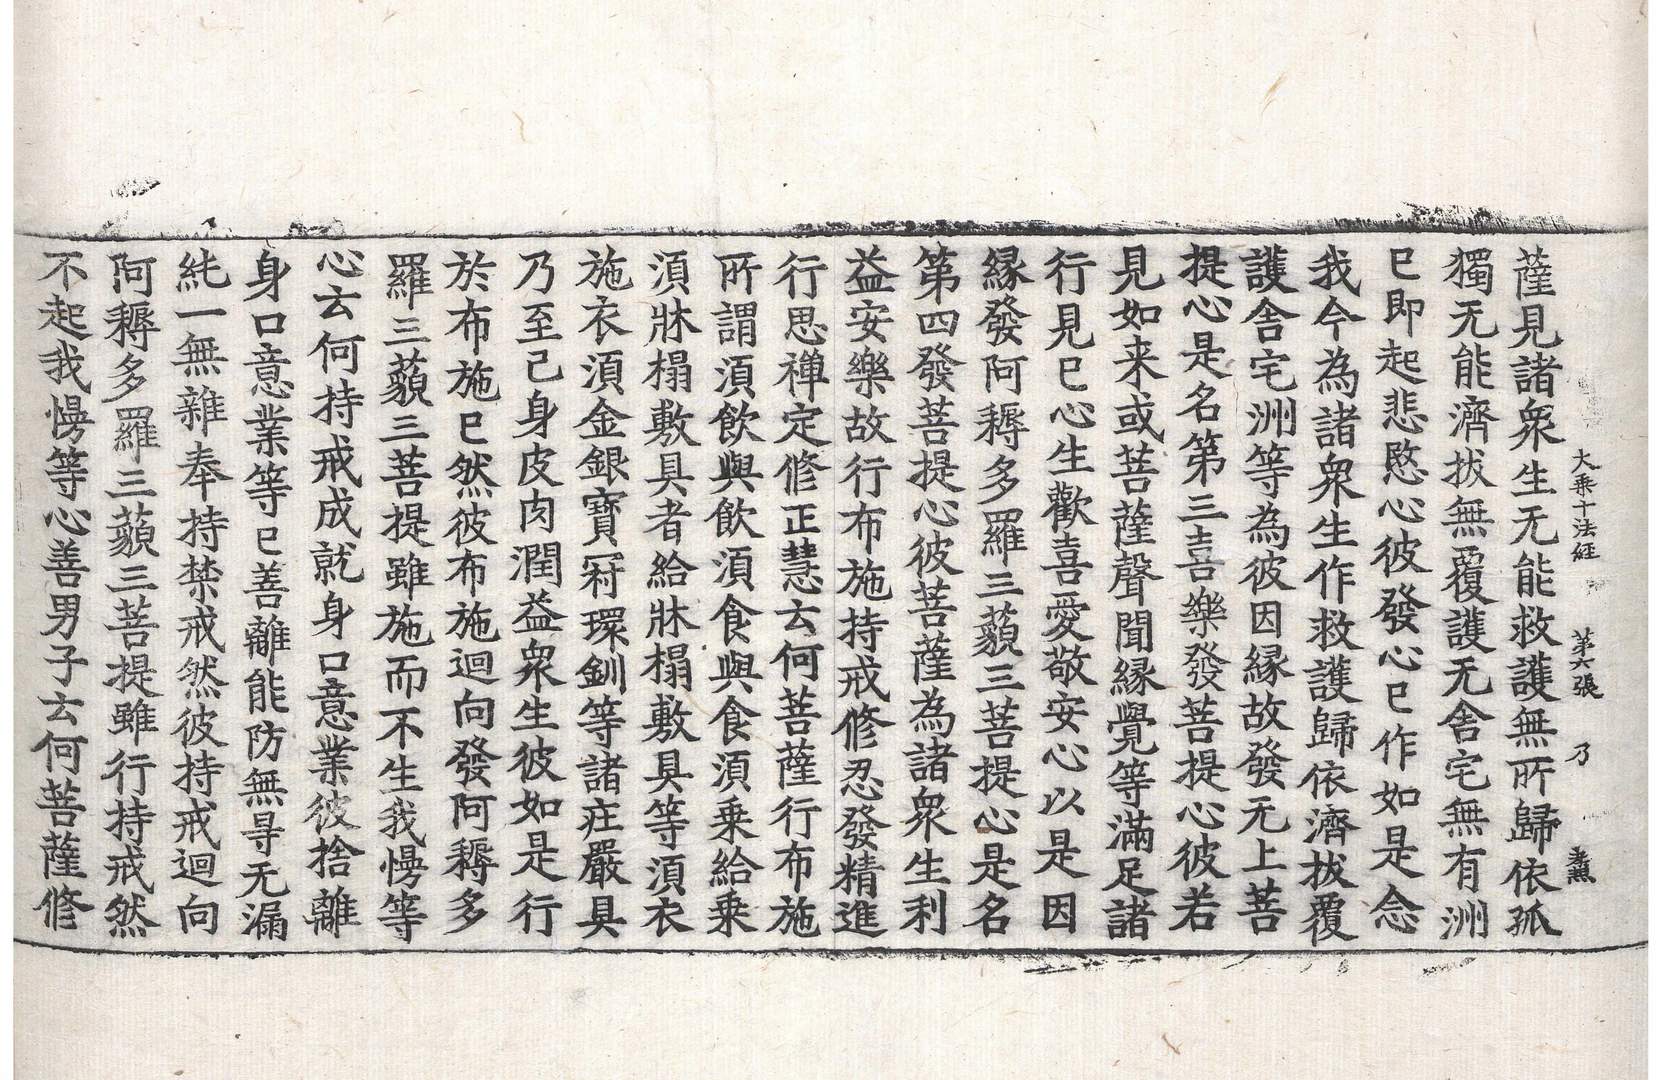 大乘十法経 第六張 乃
薩見諸衆生无能救護無所歸依孤
獨无能濟拔無覆護无舍宅無有洲
已即起悲愍心彼發心已作如是念
我今為諸衆生作救護歸依濟拔覆
護舍宅洲等為彼因縁故發无上菩
提心是名第三喜樂發菩提心彼若
見如来或菩薩聲聞縁覺等滿足諸
行見已心生歡喜愛敬安心以是因
縁發阿耨多羅三藐三菩提心是名
第四發菩提心彼菩薩為諸衆生利
益安樂故行布施持戒修忍發精進
行思禪定修正慧云何菩薩行布施
所謂須飲與飲須食與食須乗給乗
須牀榻敷具者給牀榻敷具等須衣
施衣須金銀寶冠環釧等諸庄嚴具
乃至己身皮肉潤益衆生彼如是行
於布施已然彼布施迴向發阿耨多
羅三藐三菩提雖施而不生我慢等
心云何持戒成就身口意業彼捨離
身口意業等已善離能防無㝵无漏
純一無雜奉持禁戒然彼持戒迴向
阿耨多羅三藐三菩提雖行持戒然
不起我慢等心善男子云何菩薩修